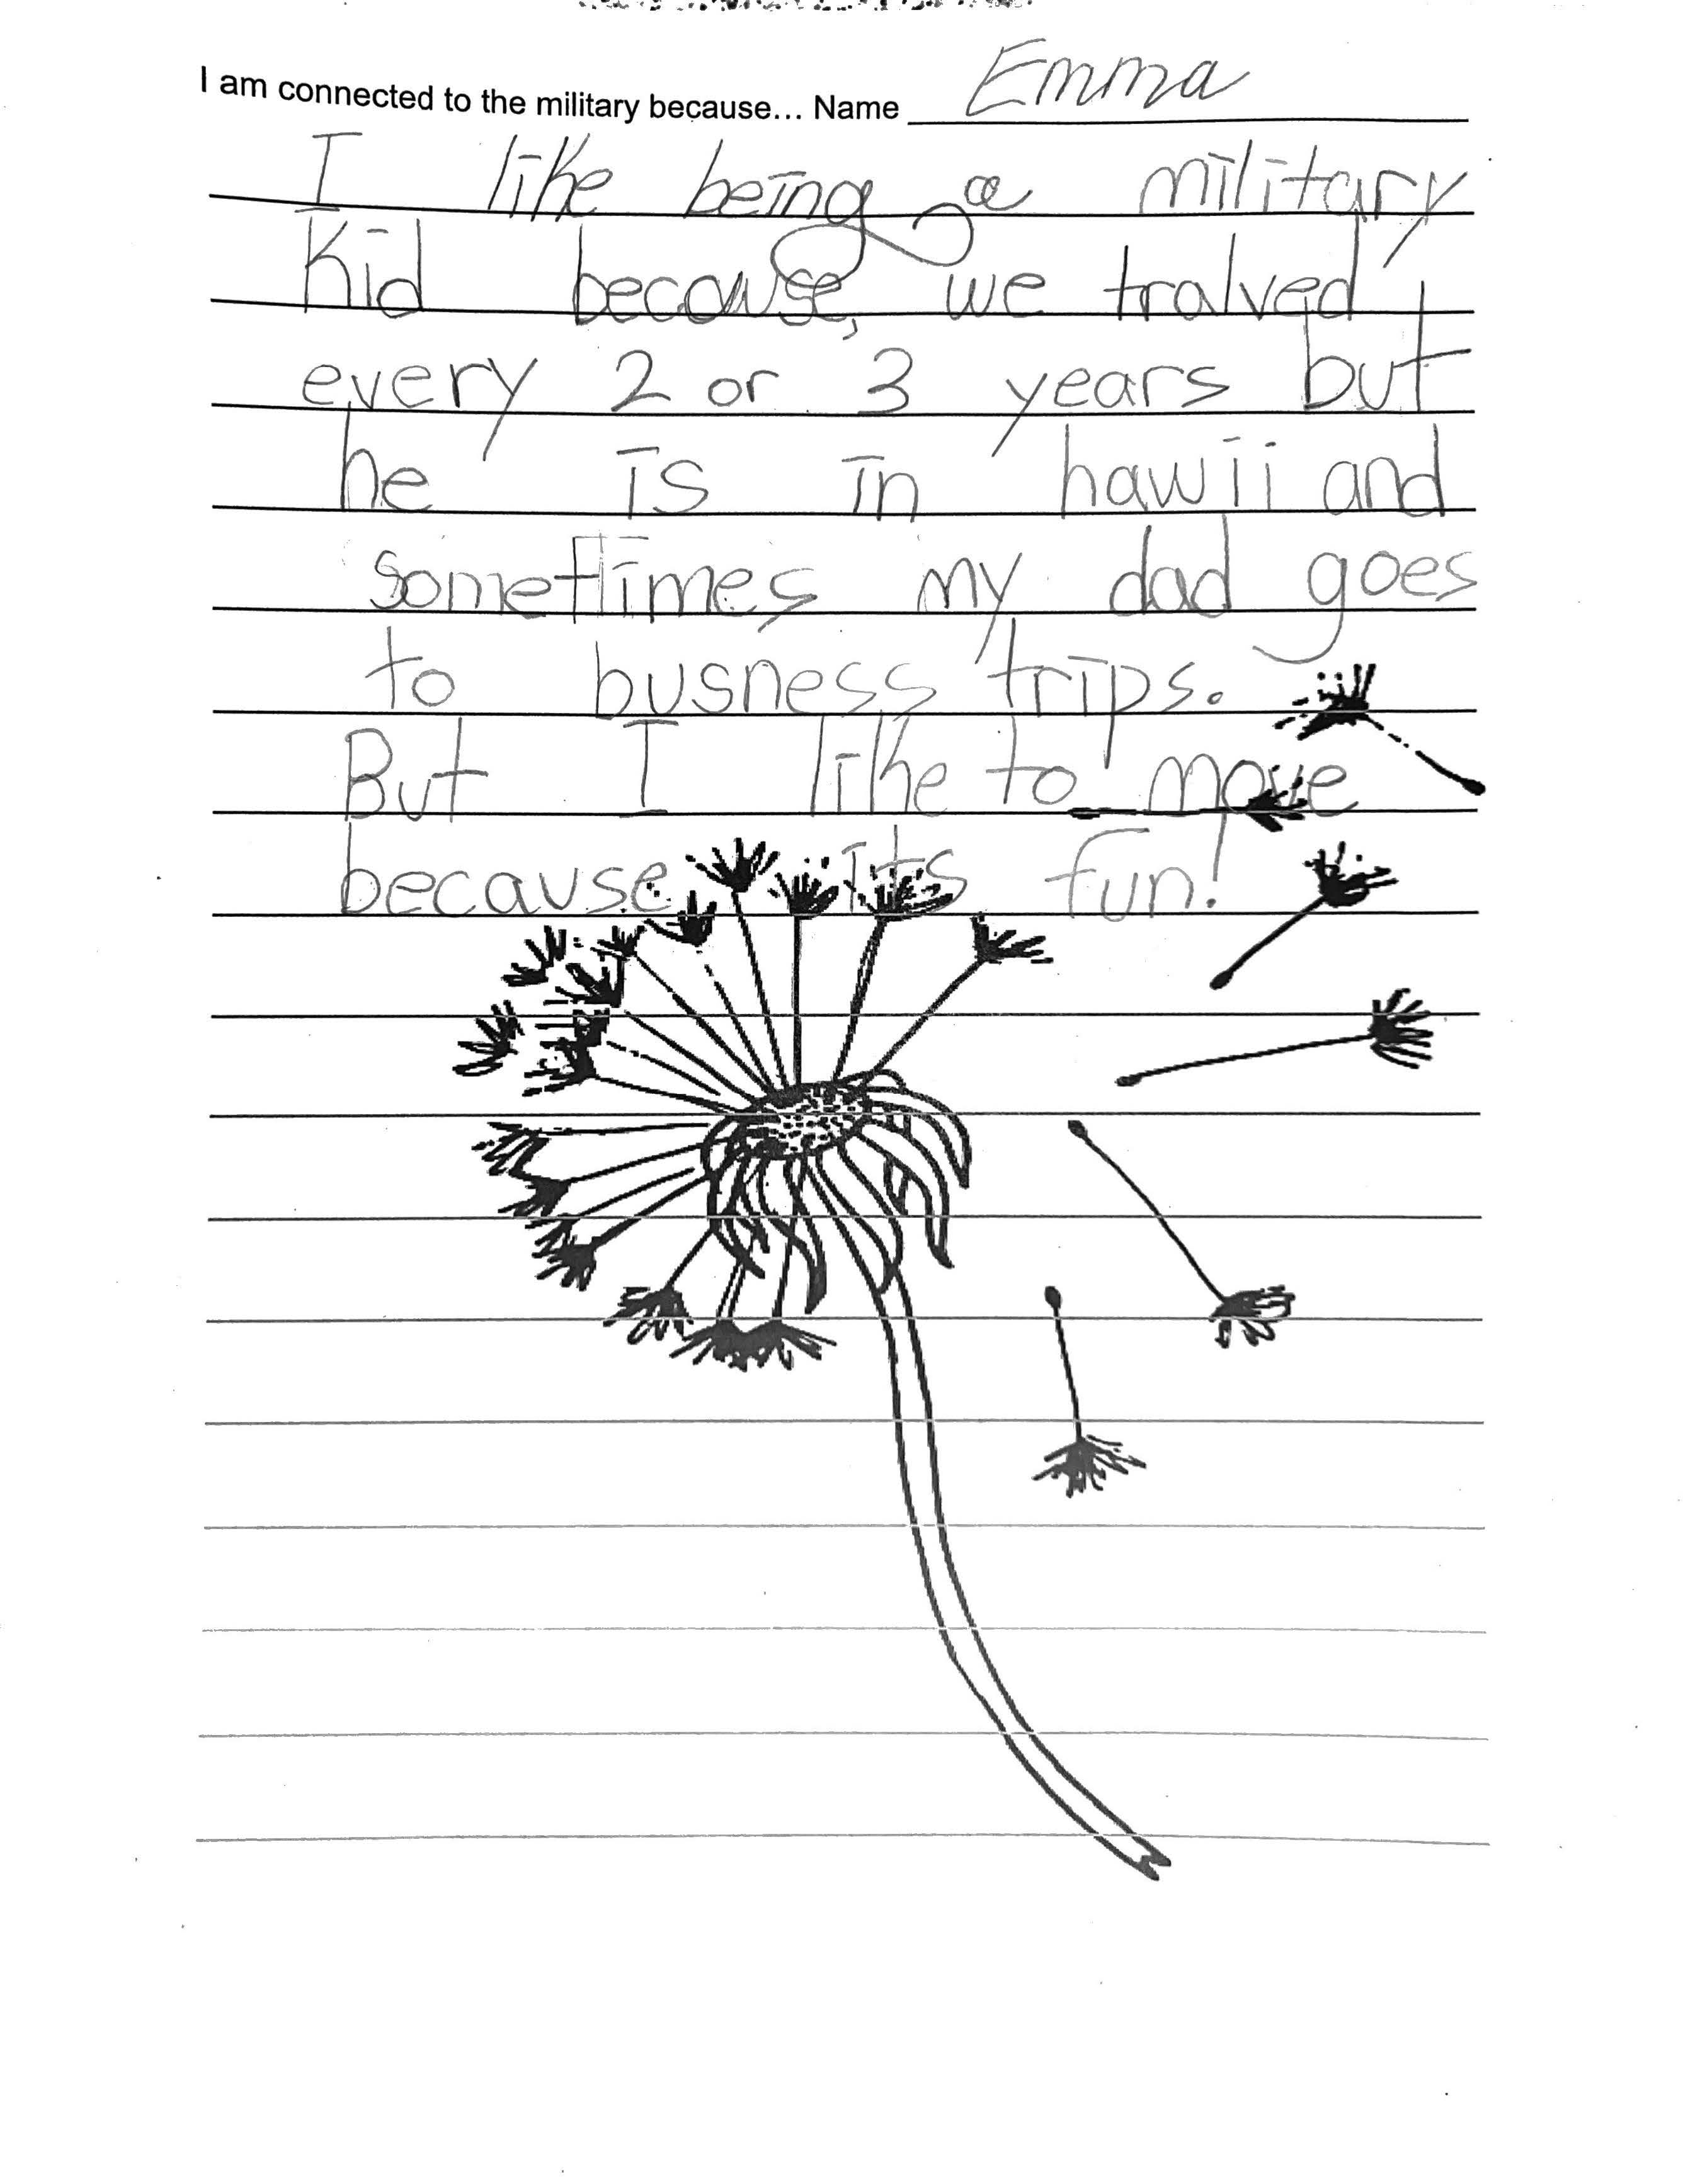 I am connected to the military because... Name Emma
I like being a military
Kid because, we tralved
every 2 or 3 years but
he is in hawii and
sometimes my dad goes
to busness trips.
But I like to move
because its fun!